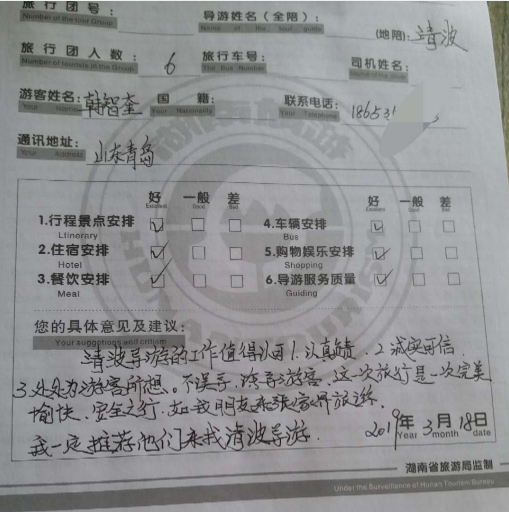 旅 行 团 号： 导游姓名（全陪）：
Number of the tour Group Name of the tour guide
（地陪）：清波
旅 行 团 人 数： 6 旅行车号： 司机姓名：
Number of tourists in the Group The Bus Number
游客姓名：韩智奎 国 籍： 联系电话：18653
Your Nationality Your Telephone
通讯地址：山东青岛
Your Address
好 一般 差 好 一般 差
Excellent Good Bad Excellent Good Bad
1.行程景点安排 4.车辆安排
Ltinerary Bus
2.住宿安排 5.购物娱乐安排
Hotel Shopping
3.餐饮安排 6.导游服务质量
Meal Guiding
您的具体意见及建议：
Your suggestions and critism
清波导游的工作值得认可1.认真负责.2.诚实可信.
3.处处为游客所想。不误导，游客.这一次旅行是一次完美
愉快、安全之行.如我朋友来张家界旅游.
我一定推荐他们来找清波导游.
2019年 3月 18日
Year month date
湖南省旅游局监制
Under the Surveillance of Hunan Tourism Bureau